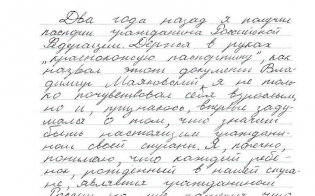 Два года назад я получил
паспорт гражданина Российской
Федерации. Держа в руках
„краснокожую паспортину", как
назвал этот документ Вла-
димир Маяковский, я не толь-
ко почувствовал себя взрослым,
но и, признаюсь, впервые заду-
мала о том, что значит
быть настоящим граждани-
ном своей страны. Я, конечно,
понимаю, что каждый ребё-
нок, рождённый в нашей стра-
не, является гражданином
России
что